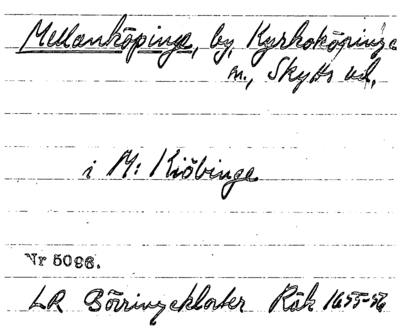 Mellanköpinge, by, Kyrkoköpinge
sn., Skytts hd,
i M: Kiöbinge
Nr 5096.
LR Börringekloster Räk 1655-56